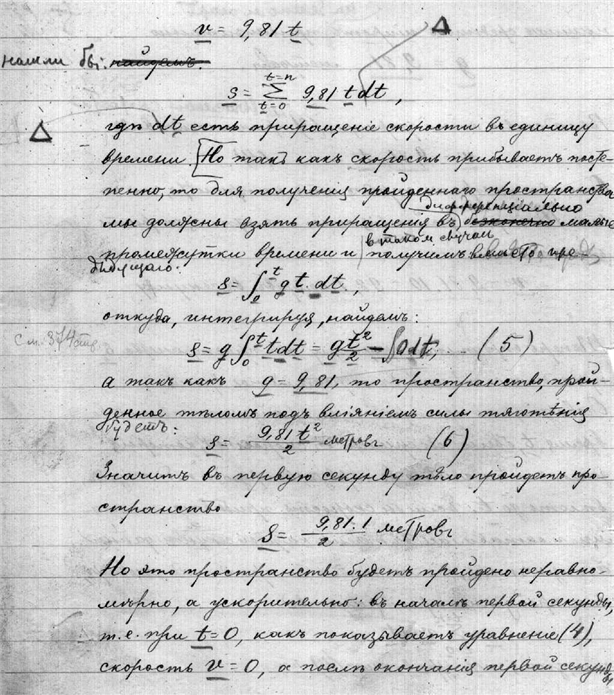 v = 9,81 t
нашли бы: найдемъ.
s = Σ_{t=0}^{t=n} 9,81 t dt,
гдѣ dt есть приращеніе скорости въ единицу
времени. Но такъ какъ скорость прибываетъ посте-
пенно, то для полученія пройденнаго пространства
дифференціально
мы должны взять приращенія въ безконечно малые
въ такомъ случаѣ
промежутки времени и получимъ вмѣсто пре-
дыдущаго:
s = ∫_0^t g t dt,
откуда, интегрируя, найдемъ:
s = g ∫_0^t t dt = gt²/2 - ∫0dt, ... (5)
а такъ какъ g = 9,81, то пространство, прой-
денное тѣломъ подъ вліяніемъ силы тяготѣнія
будетъ:
s = 9,81 t²/2 метровъ (6)
Значитъ въ первую секунду тѣло пройдетъ про-
странство
s = 9,81.1/2 метровъ
Но это пространство будетъ пройдено неравно-
мѣрно, а ускорительно: въ началѣ первой секунды,
т.е. при t = 0, какъ показываетъ уравненіе (4),
скорость v = 0, а послѣ окончанія первой секунды,